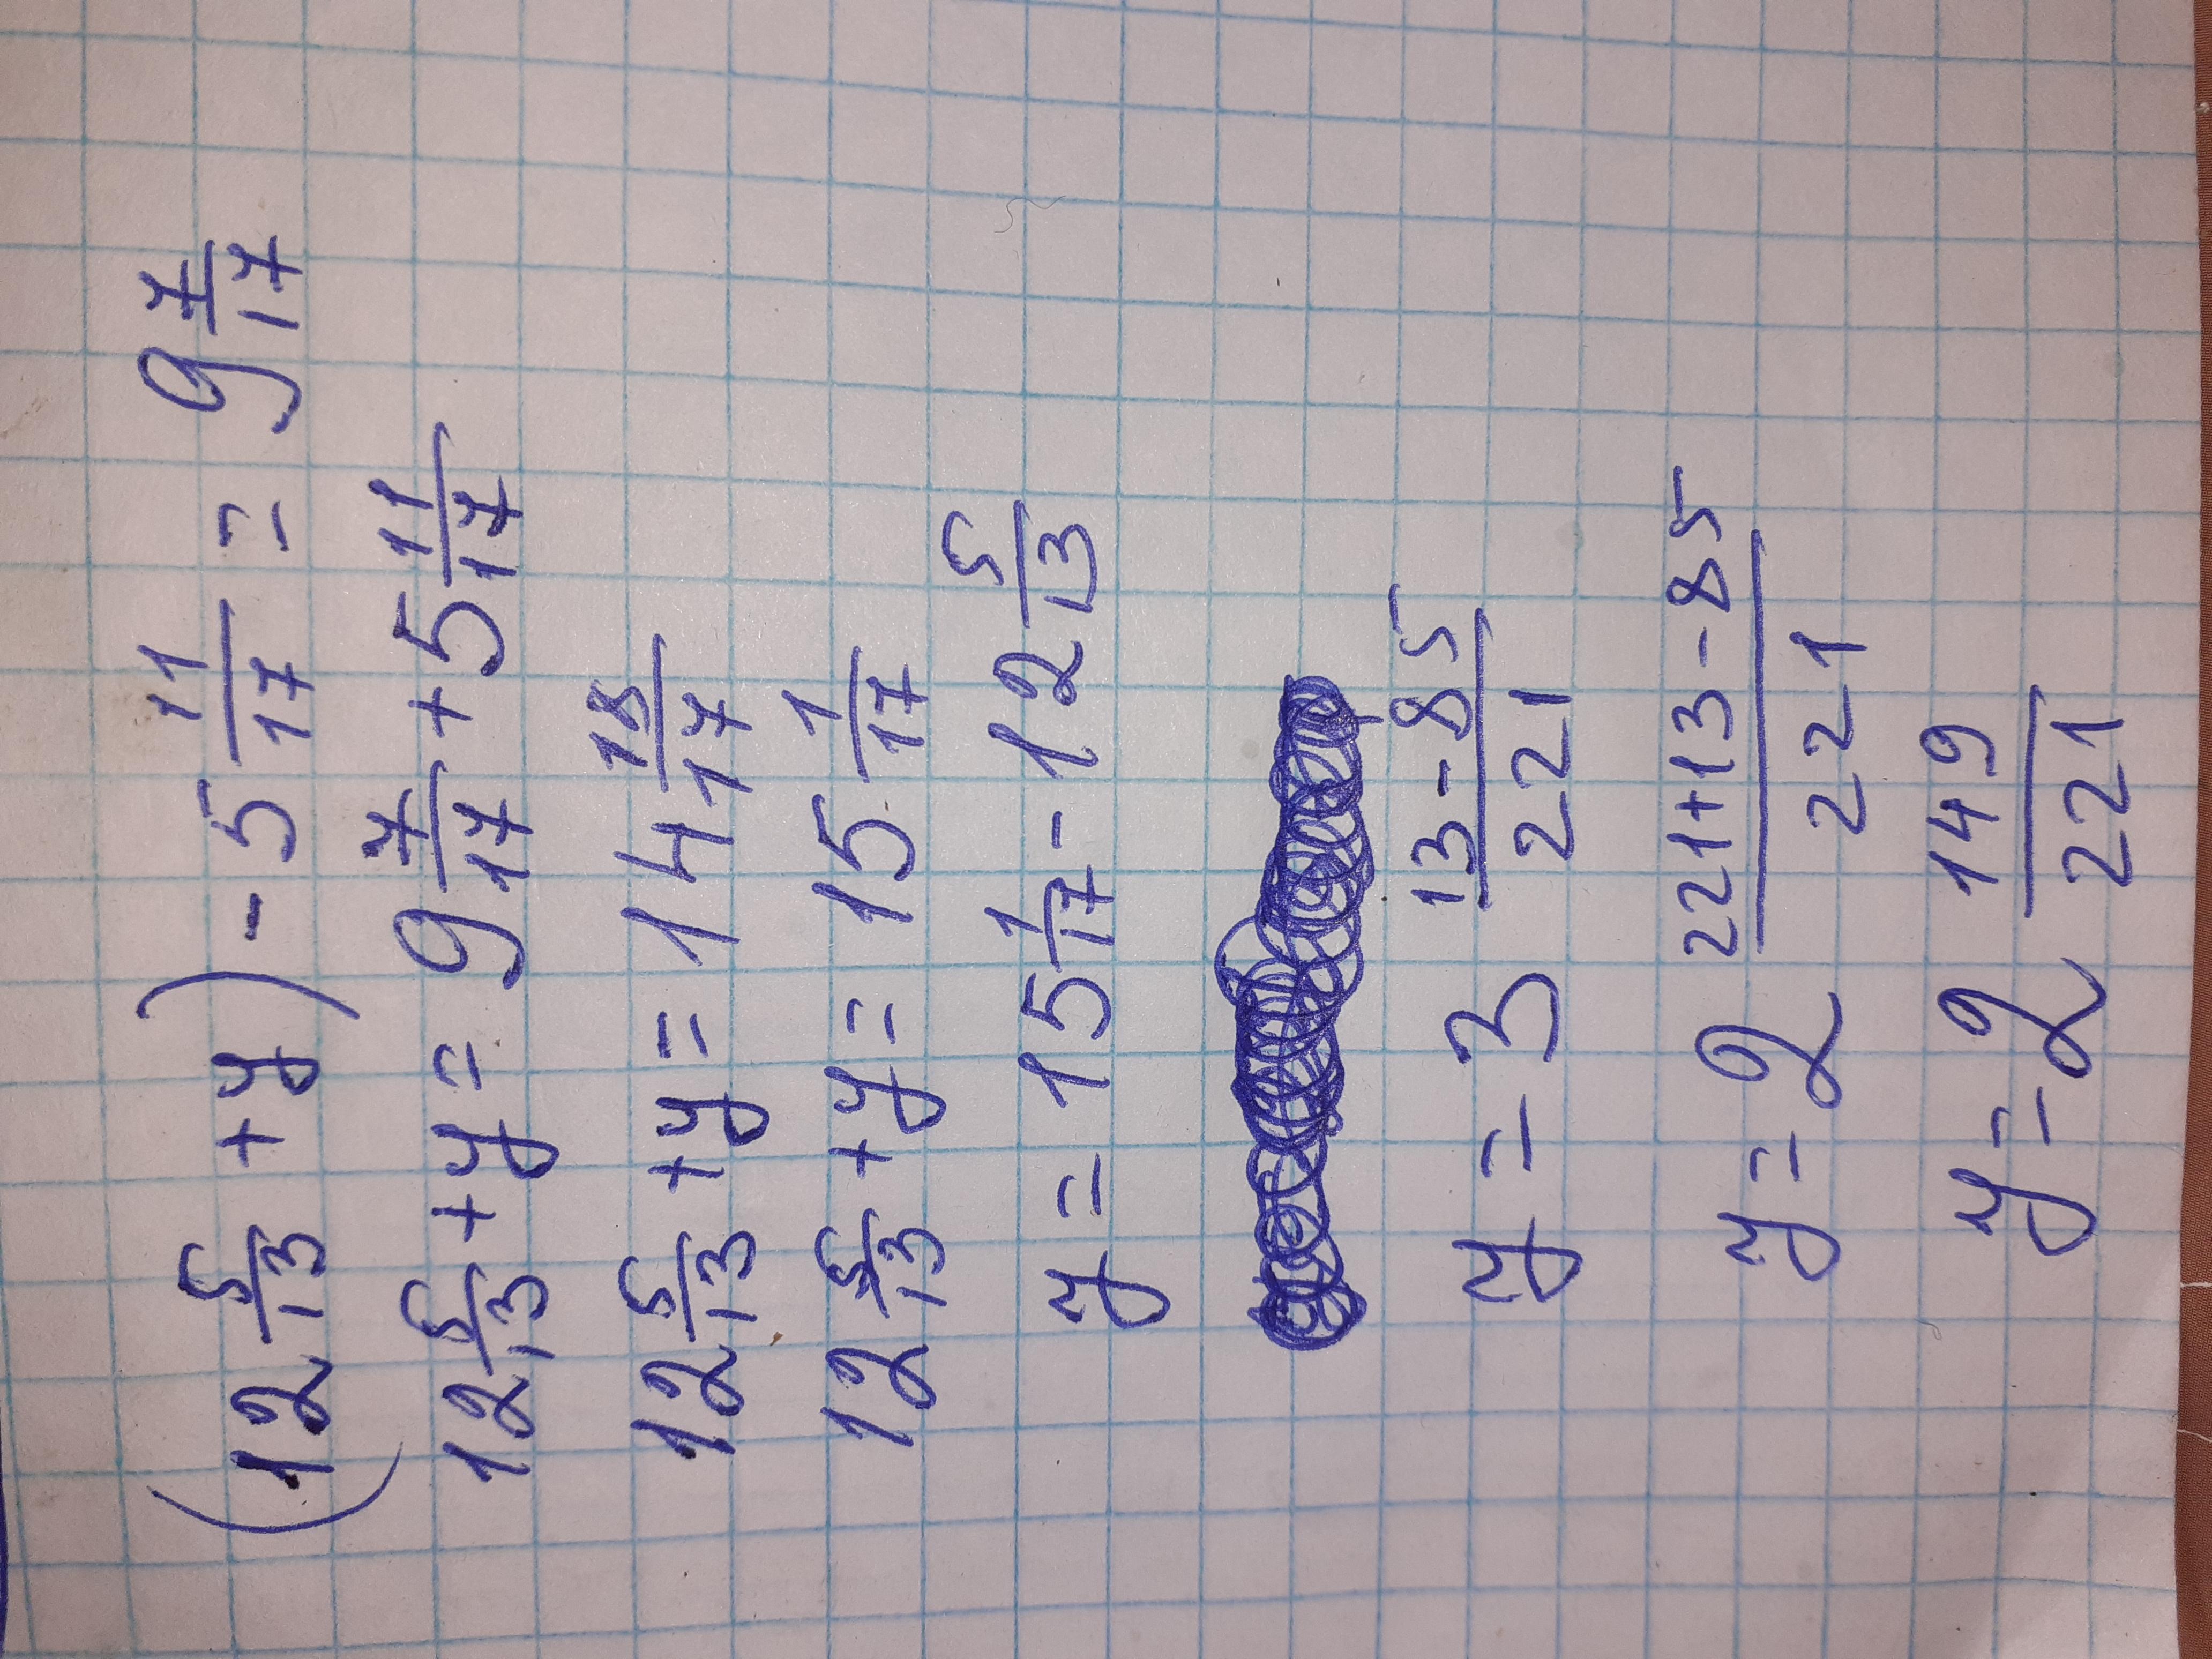 (12 5/13 + y) - 5 11/17 = 9 7/17
12 5/13 + y = 9 7/17 + 5 11/17
12 5/13 + y = 14 18/17
12 5/13 + y = 15 1/17
y = 15 1/17 - 12 5/13
y = 3 13-85/221
y = 2 221+13-85/221
y = 2 149/221